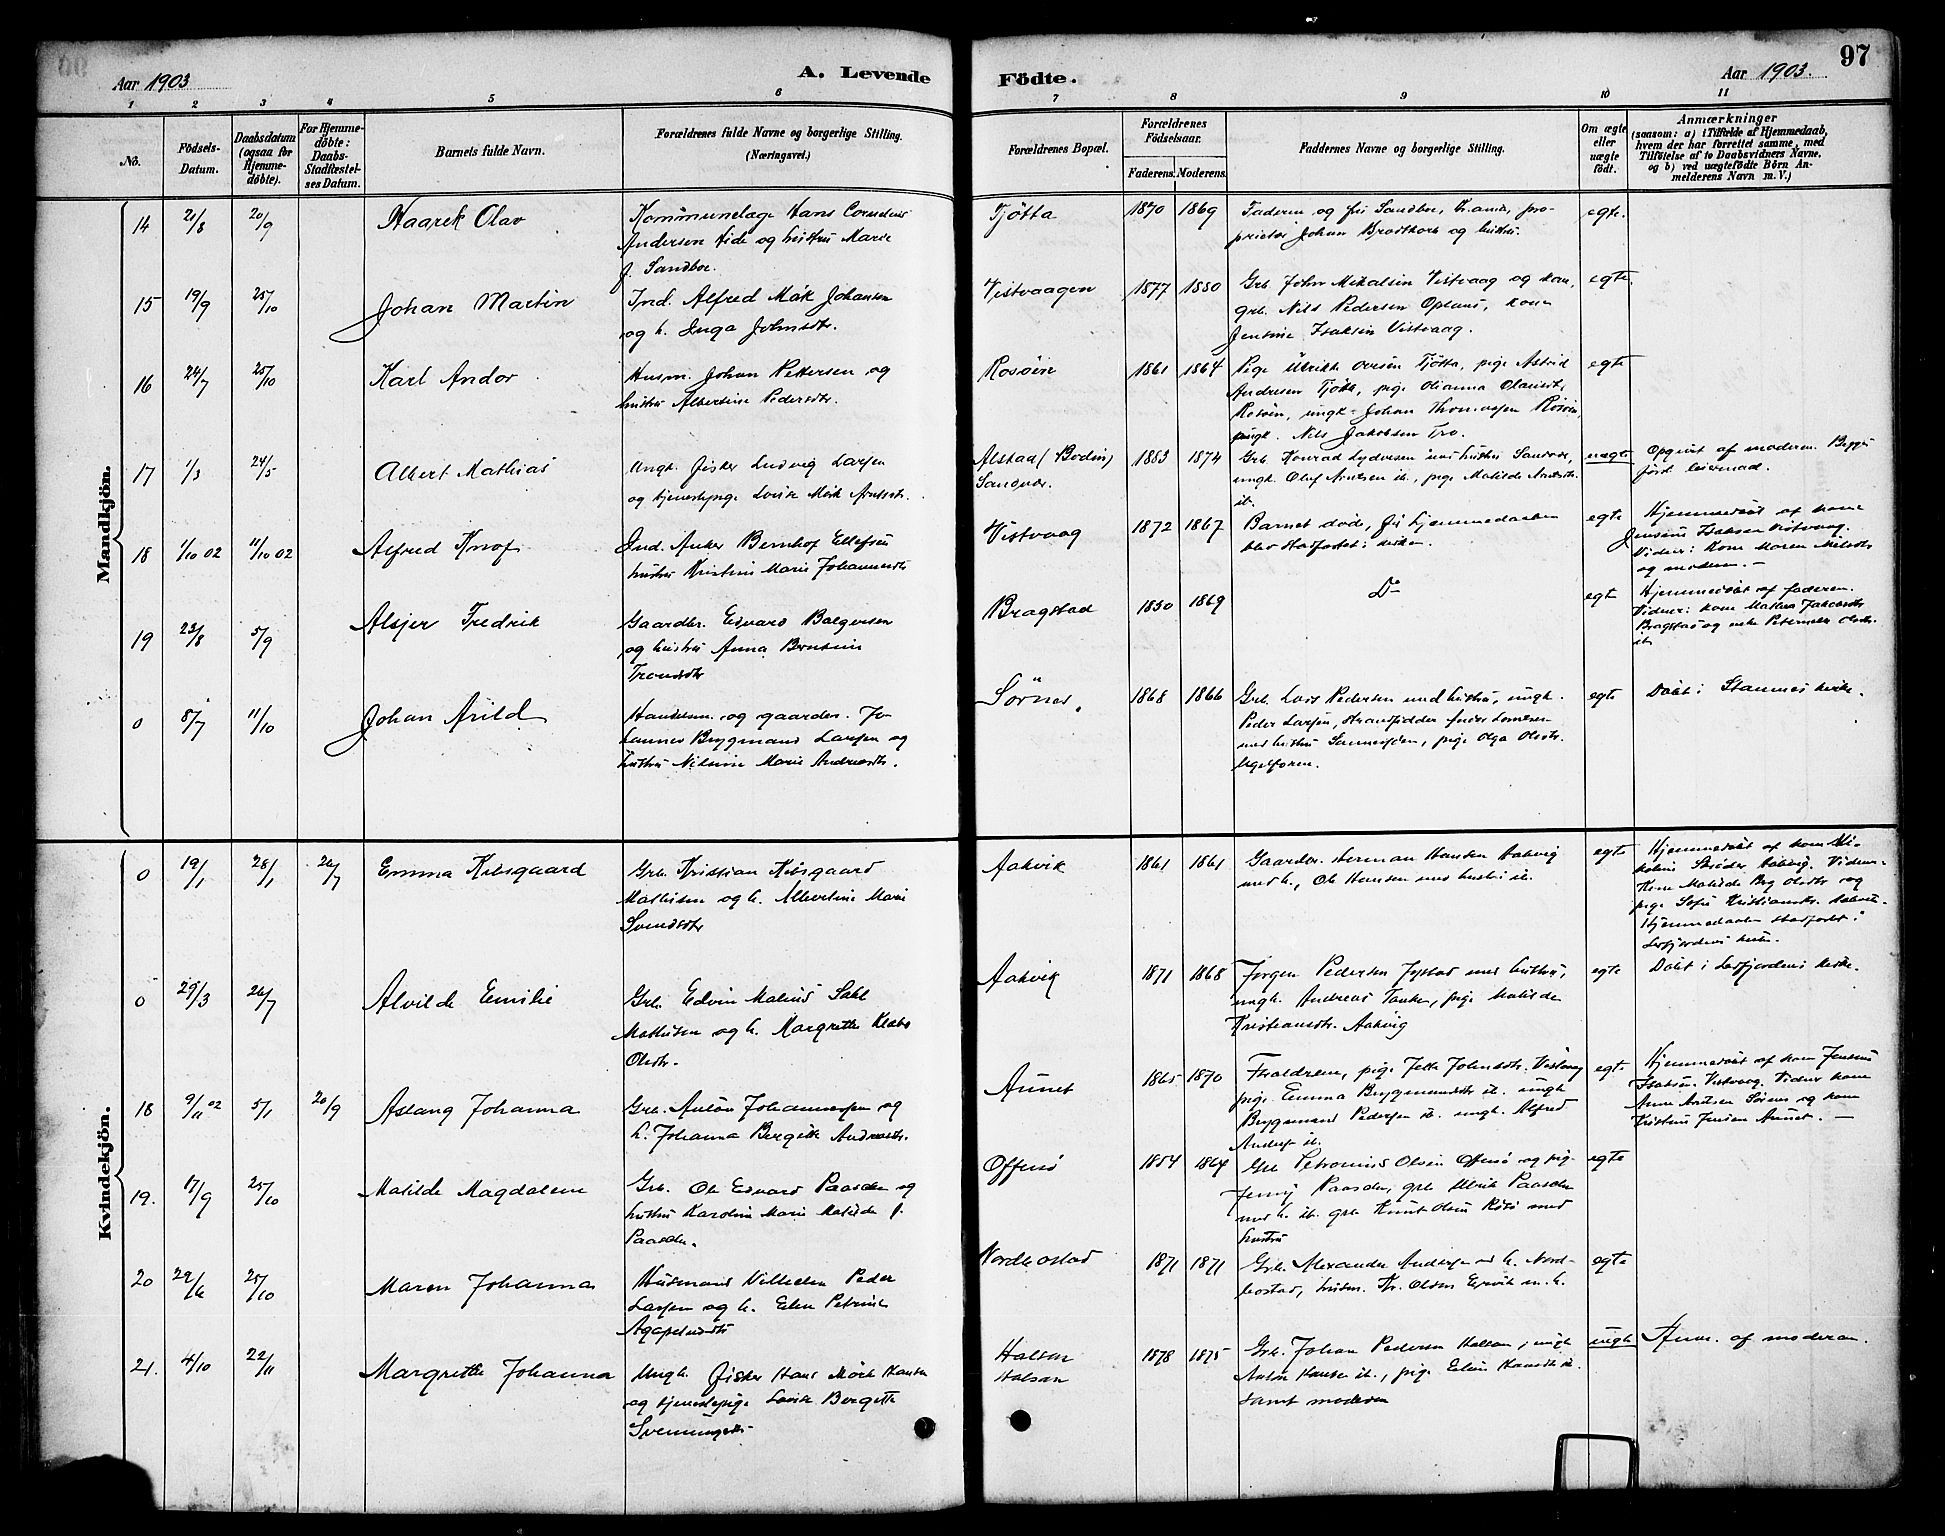 97
Aar 1903
A. Levende
Födte.
Aar 1903.
1 2 3 4 5 6 7 8 9 10 11
No.
Födsels-
Datum.
Daabsdatum
(ogsaa for
Hjemme-
döbte).
For Hjemme-
döbte:
Daabs-
Stadfæstel-
ses Datum.
Barnets fulde Navn.
Forældrenes fulde Navne og borgerlige Stilling.
(Næringsvei.)
Forældrenes Bopæl.
Forældrenes
Födselsaar.
Faderens. Moderens.
Faddernes Navne og borgerlige Stilling.
Om ægte
eller
uægte
födt.
Anmærkninger
(saasom: a) i Tilfælde af Hjemmedaab,
hvem der har forrettet samme, med
Tilföielse af to Daabsvidners Navne,
og b) ved uægtefödte Börn An-
melderens Navn m. V.)
Mandkjön.
14 21/8 20/9 Haarek Olav
Kommunelæge Hans Cornelius
Andersen Hide og hustru Marie
f. Sandboe.
Tjøtta 1870 1869
Faderen og frk Sandboe, Krania, pro-
prietær Johan Brodtkorb og hustru.
egte.
15 19/9 25/10 Johan Martin
Ind. Alfred Mörk Johansen
og h. Inga Johnsdtr.
Vistvaagen 1877 1880
Grb. John Mikalsen Vistvaag og kone,
grb. Nils Pedersen Oplans, kone
Jensine Isaksen Vistvaag.
egte.
16 24/7 25/10 Karl Andor
Husm. Johan Pettersen og
hustru Albertine Pedersdtr.
Rosöen 1861 1864
Pige Ulrikke Ovesen Tjøtta, pige Astrid
Andresen Tjøtta, pige Olianna Olausdtr,
Rosöen, ungk. Johan Thomassen Rösöen,
ungk. Nils Jakobsen Tro.
egte
17 1/3 24/5 Albert Mathias
Ungk. fisker Ludvig Larsen
og tjenestepige Lovise Mörk Arntsdtr.
Alstad (Bodin)
Sandvær.
1883 1874
Grb. Konrad Lydersen med hustru Sandvær,
ungk. Oluf Arntsen ib., pige Matilde Arntsdtr.
ib.
uægte
Opgivet af moderen. Begges
förste leiermaal.
18 1/10 02 11/10 02 Alfred Knof
Ind. Anker Bernhof Ellefsen
hustru Kristine Marie Johannesdtr
Vistvaag 1872 1867
Barnet døde, för hjemmedaaben
blev stadfæstet i kirken.
egte
Hjemmedöbt af kone
Jensine Isaksen Vistvaag.
Vidner: Kone Maren Nilsdtr
og moderen. —
19 23/8 5/9 Alsjer Fredrik
Gaardbr. Edvard Balgersen
og hustru Anna Berntine
Trondsdtr
Bragstad 1830 1869
Do
egte
Hjemmedöbt af faderen.
Vidner: kone Mathea Jakobsdtr
Bragstad og enke Peternelle Olsdtr.
ib.
0 8/7 11/10 Johan Arild
Handelsm. og gaardbr. Jo-
hannes Brygmand Larsen og
hustru Nilsine Marie Andreasdtr.
Sörnes. 1868 1866
Grb. Lars Pedersen med hustru, ungk.
Peder Larsen, strandsidder
med hustru, pige Olga Olsdtr.
egte
Döbt i Stamnes kirke.
Kvindekjön.
0 19/1 28/1 26/7 Emma Kilsgaard
Grb. Kristian Kilsgaard
Mathisen og h. Albertine Marie
Svendsdtr
Aakvik 1861 1861
Gaardbr. Herman Hansen Aakvig
med h., Ole Hansen med hustru ib.
egte
Hjemmedöbt af kone
Aakvig. Vidner:
Kone Matilde Berg Olsdtr og
pige Sofie Kristiansdtr. Aakvik.
Hjemmedaaben stadfæstet i
Leirfjordens kirke.
0 29/3 26/7 Alvilde Emilie
Grb. Edvin Malius Dahl
Mathisen og h. Margrethe Klæbo
Olsdtr.
Aakvik 1871 1868
Jørgen Pedersen Jystad med hustru,
ungk. Andreas, pige Matilde
Kristiansdtr. Aakvig
egte
Döbt i Leirfjordens kirke.
18 9/11 02 5/1 20/9 Aslaug Johanna
Grb. Anton Johannesen og
h. Johanna Bergitte Andreasdtr.
Aunet 1865 1870
Forældrene, pige Jette Johnsdtr. Vistvaag
pige Emma Brygmansdtr ib. ungk.
Brygmand Pedersen ib. ungk. Alfred
Anders. ib.
egte
Hjemmedöbt af kone Jensine
Isaksen Vistvaag. Vidner kone
Anne Arntsen Sörnes og kone
Kristine Jensen Aunet. —
19. 17/9 25/10 Matilde Magdalene
Grb. Ole Edvard Paasche og
hustru Karoline Marie Matilde f.
Paasche.
Offersö 1854 1864
Grb. Petronius Olsen Offersö og pige
Jenny Paasche, grb. Ulrik Paasche
med h. ib. grb. Knut Olsen Rösö med
hustru
egte
20 22/6 25/10 Maren Johanna
Husmand Vilhelm Peder
Larsen og h. Elen Petrine
Agapetusdtr
Nordbostad 1871 1871
Grb. Alexander Andersen med h. Nord-
bostad, husm. Kr. Olsen Ejevik m. h.
egte
21. 4/10 22/11 Margrethe Johanna
Ungk. fisker Hans Mörk Hansen
og tjenestepige Lovise Bergette
Sveinungsdtr
Halsan
Halsan
1878 1875
Grb. Johan Pedersen Halsan, ungk
Anton Hansen ib., pige Eline Hansdtr ib.
samt moderen
uegte
Anm. af moderen.